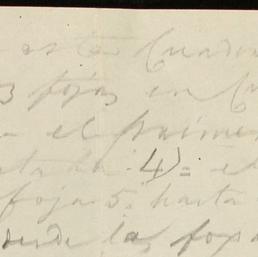 este Cuader
fojas en
el primer
4)= el
foja 5. hasta
desde la foja